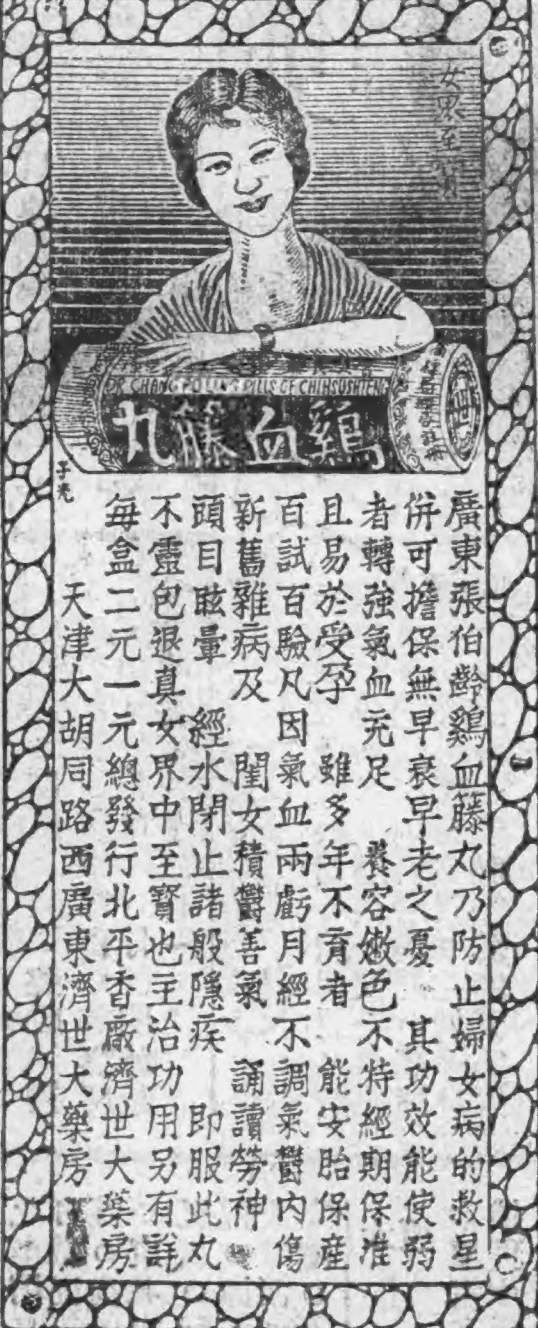 女界至寶
DR CHANG POLING PILLS OF CHIHSUEHTENG
鷄血藤丸
子光
廣東張伯齡鷄血藤丸乃防止婦女病的救星
併可擔保無早衰早老之憂 其功效能使弱
者轉強氣血充足 養容嫩色不特經期保准
且易於受孕 雖多年不育者 能安胎保產
百試百驗凡因氣血兩虧月經不調氣鬱內傷
新舊雜病及 閨女積鬱善氣 誦讀勞神
頭目眩暈 經水閉止諸般隱疾 即服此丸
不靈包退真女界中至寶也主治功用另有詳
每盒二元一元總發行北平香廠濟世大藥房
天津大胡同路西廣東濟世大藥房